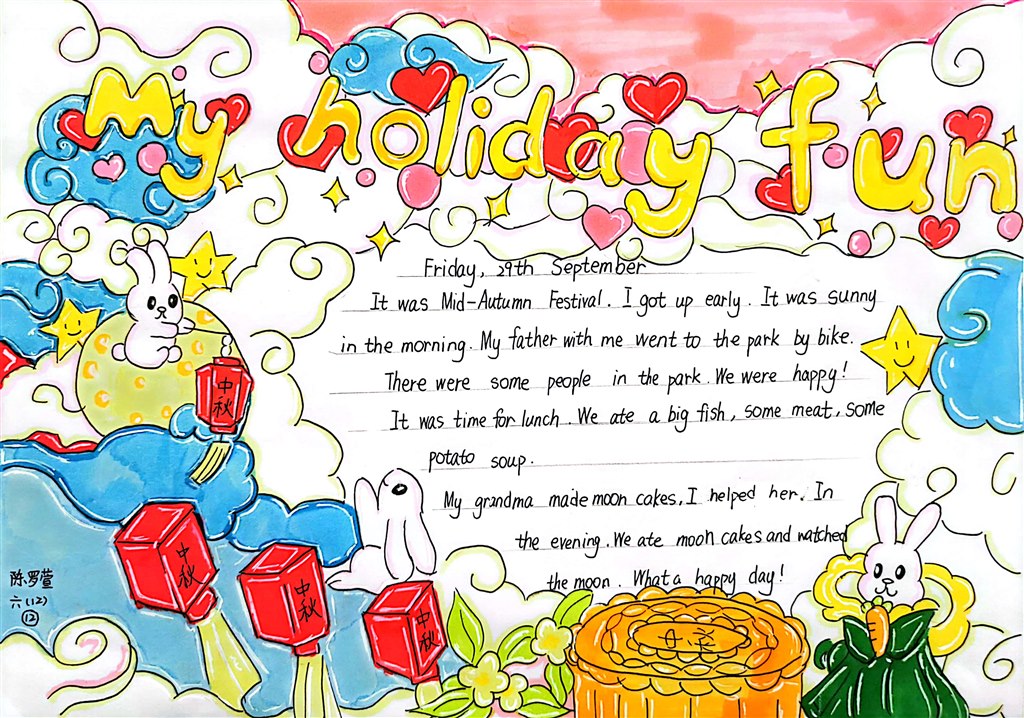 My holiday fun
Friday, 29th September
It was Mid-Autumn Festival. I got up early. It was sunny
in the morning. My father with me went to the park by bike.
There were some people in the park. We were happy!
It was time for lunch. We ate a big fish, some meat, some
potato soup.
My grandma made moon cakes, I helped her. In
the evening. We ate moon cakes and watched
the moon. What a happy day!
中秋
中秋
中秋
中秋
中秋
陈罗萱
六(12)
⑫